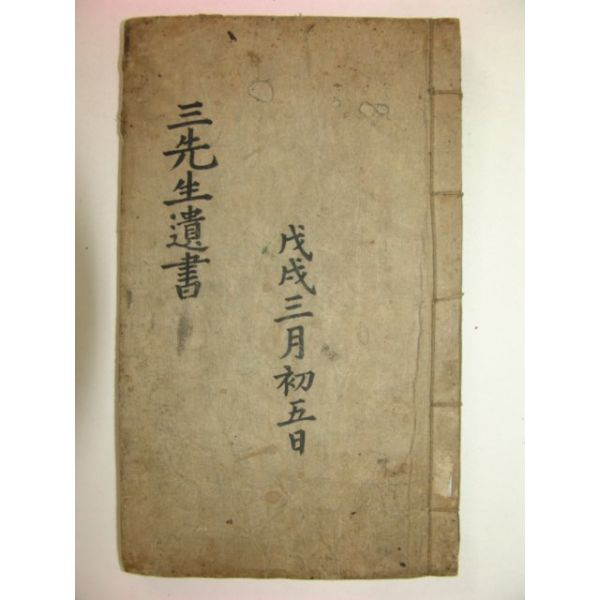 戊戌三月初五日
三先生遺書